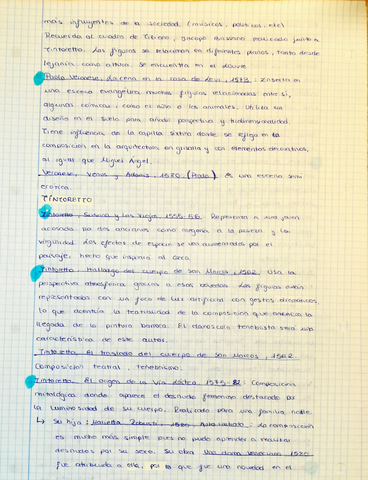 más influyentes de la sociedad (músicos, políticos, etc)
Recuerda al cuadro de Tiziano, Jacopo Bassano publicado junto a
Tintoretto. Las figuras se relacionan en diferentes planos, tanto desde
lejanía como altura. Se encuentra en el Louvre.
Paolo Veronese, La cena en la casa de Levi, 1573: Inserta en
una escena evangélica muchas figuras relacionadas entre sí,
algunas cómicas, como el niño o los animales. Utiliza un
diseño en el suelo para añadir perspectiva y tridimensionalidad.
Tiene influencia de la capilla sixtina donde se refleja en la
composición en la arquitectura en guinarla y con elementos decorativos,
al igual que Miguel Ángel.
Veronese, Venus y Adonis, 1580 (Prado). Es una escena semi
erótica.
TINTORETTO
Tintoretto, Susana y los viejos, 1555-56. Representa a una joven
acosada por dos ancianos como alegoría a la pureza y la
virginidad. Los efectos de espacio se ven aumentados por el
paisaje, hecho que inspiraría al Greco.
Tintoretto, Hallazgo del cuerpo de San Marcos, 1562. Usa la
perspectiva atmosférica gracias a esas bóvedas. Las figuras están
representadas con un foco de luz artificial con gestos dramáticos,
lo que acentúa la teatralidad de la composición que anuncia la
llegada de la pintura barroca. El claroscuro tenebrista será una
característica de este autor.
Tintoretto. El traslado del cuerpo de San Marcos, 1562
Composición teatral, tenebrismo.
Tintoretto. El origen de la Vía Láctea. 1575-82: Composición
mitológica donde aparece el desnudo femenino destacado por
la luminosidad de su cuerpo. Realizado para una familia noble.
↳ Su hija: Marietta Robusti, 1580, Autorretrato: La composición
es mucho más simple pues no pudo aprender a realizar
desnudos por su sexo. Su obra Una dama veneciana 1580
fue atribuida a ella, por lo que fue una novedad en el